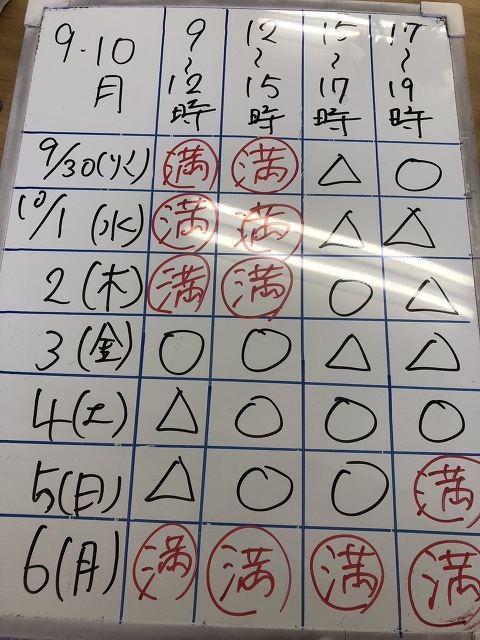 9・10月 9〜12時 12〜15時 15〜17時 17〜19時
9/30(火) 満 満 △ ○
10/1(水) 満 満 △ △
2(木) 満 満 ○ △
3(金) ○ ○ △ △
4(土) △ ○ ○ ○
5(日) △ ○ ○ 満
6(月) 満 満 満 満